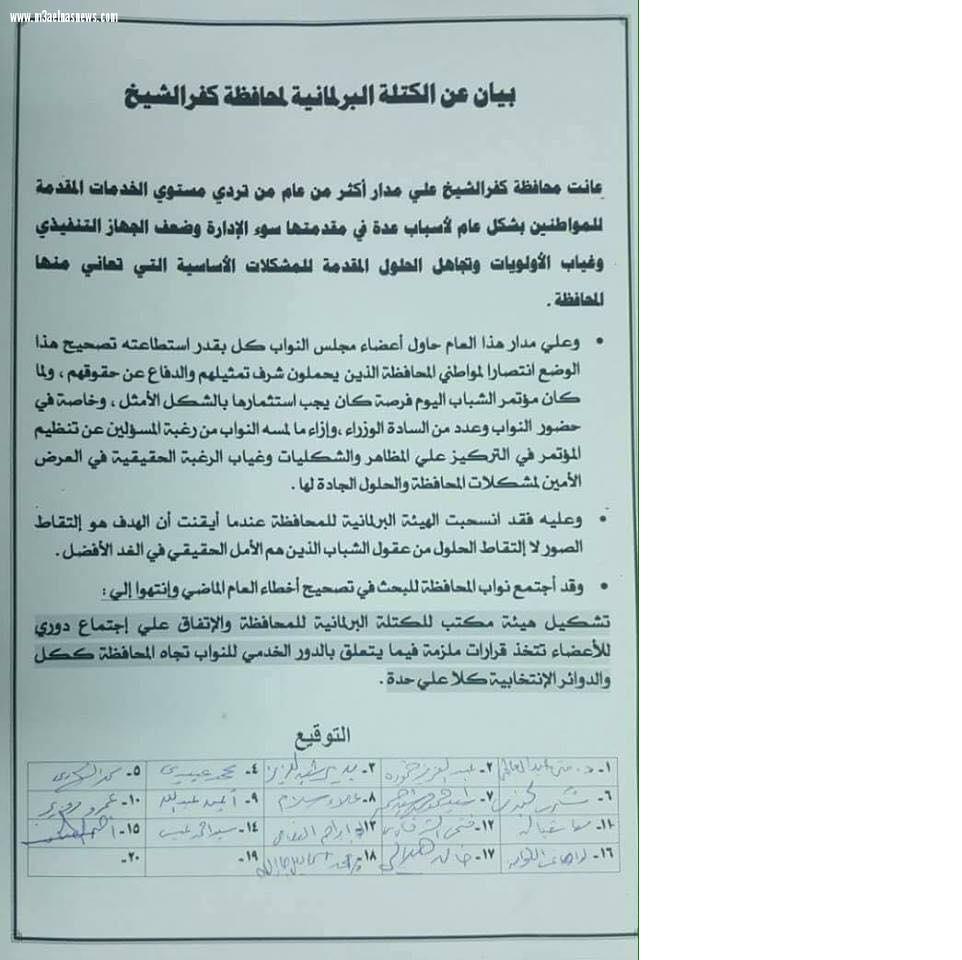 www.m3aelnasnews.com
بيان عن الكتلة البرلمانية لمحافظة كفرالشيخ
عانت محافظة كفرالشيخ علي مدار أكثر من عام من تردي مستوي الخدمات المقدمة
للمواطنين بشكل عام لأسباب عدة في مقدمتها سوء الإدارة وضعف الجهاز التنفيذي
وغياب الأولويات وتجاهل الحلول المقدمة للمشكلات الأساسية التي تعاني منها
المحافظة .
• وعلي مدار هذا العام حاول أعضاء مجلس النواب كل بقدر استطاعته تصحيح هذا
الوضع انتصارا لمواطني المحافظة الذين يحملون شرف تمثيلهم والدفاع عن حقوقهم ، ولما
كان مؤتمر الشباب اليوم فرصة كان يجب استثمارها بالشكل الأمثل ، وخاصة في
حضور النواب وعدد من السادة الوزراء ،وإزاء ما لمسه النواب من رغبة المسؤلين عن تنظيم
المؤتمر في التركيز علي المظاهر والشكليات وغياب الرغبة الحقيقية في العرض
الأمين لمشكلات المحافظة والحلول الجادة لها .
• وعليه فقد انسحبت الهيئة البرلمانية للمحافظة عندما أيقنت أن الهدف هو إلتقاط
الصور لا إلتقاط الحلول من عقول الشباب الذين هم الأمل الحقيقي في الغد الأفضل .
• وقد أجتمع نواب المحافظة للبحث في تصحيح أخطاء العام الماضي وإنتهوا إلي :
تشكيل هيئة مكتب للكتلة البرلمانية للمحافظة والإتفاق علي إجتماع دوري
للأعضاء تتخذ قرارات ملزمة فيما يتعلق بالدور الخدمي للنواب تجاه المحافظة ككل
والدوائر الإنتخابية كلا علي حدة .
التوقيع
١- د. ٢- عبد العزيز حمودة ٣- ٤- محمد ٥- محمد
٦- ٧- ٨- علاء سلام ٩- عبدالله ١٠- عمرو
١١- ١٢- فتحي الشرقاوي ١٣- إبراهيم ١٤- ١٥-
١٦- ١٧- خالد هلالي ١٨- ١٩- ٢٠-